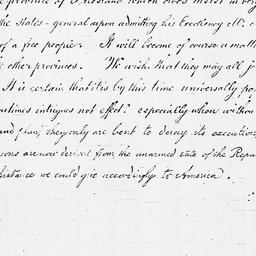 province of Friesland which does insist in very
the States-general upon admitting his Excellency Mr.
of a free people. It will become of course a matt
e other provinces. We wish that they may all j
It is certain that it is by this time universally po
metimes intrigues not effect? especially when withou
and plan; they only are bent to decay its execution,
sons are now derived from the unarmed state of the Repu
sistance we could give accordingly to America.